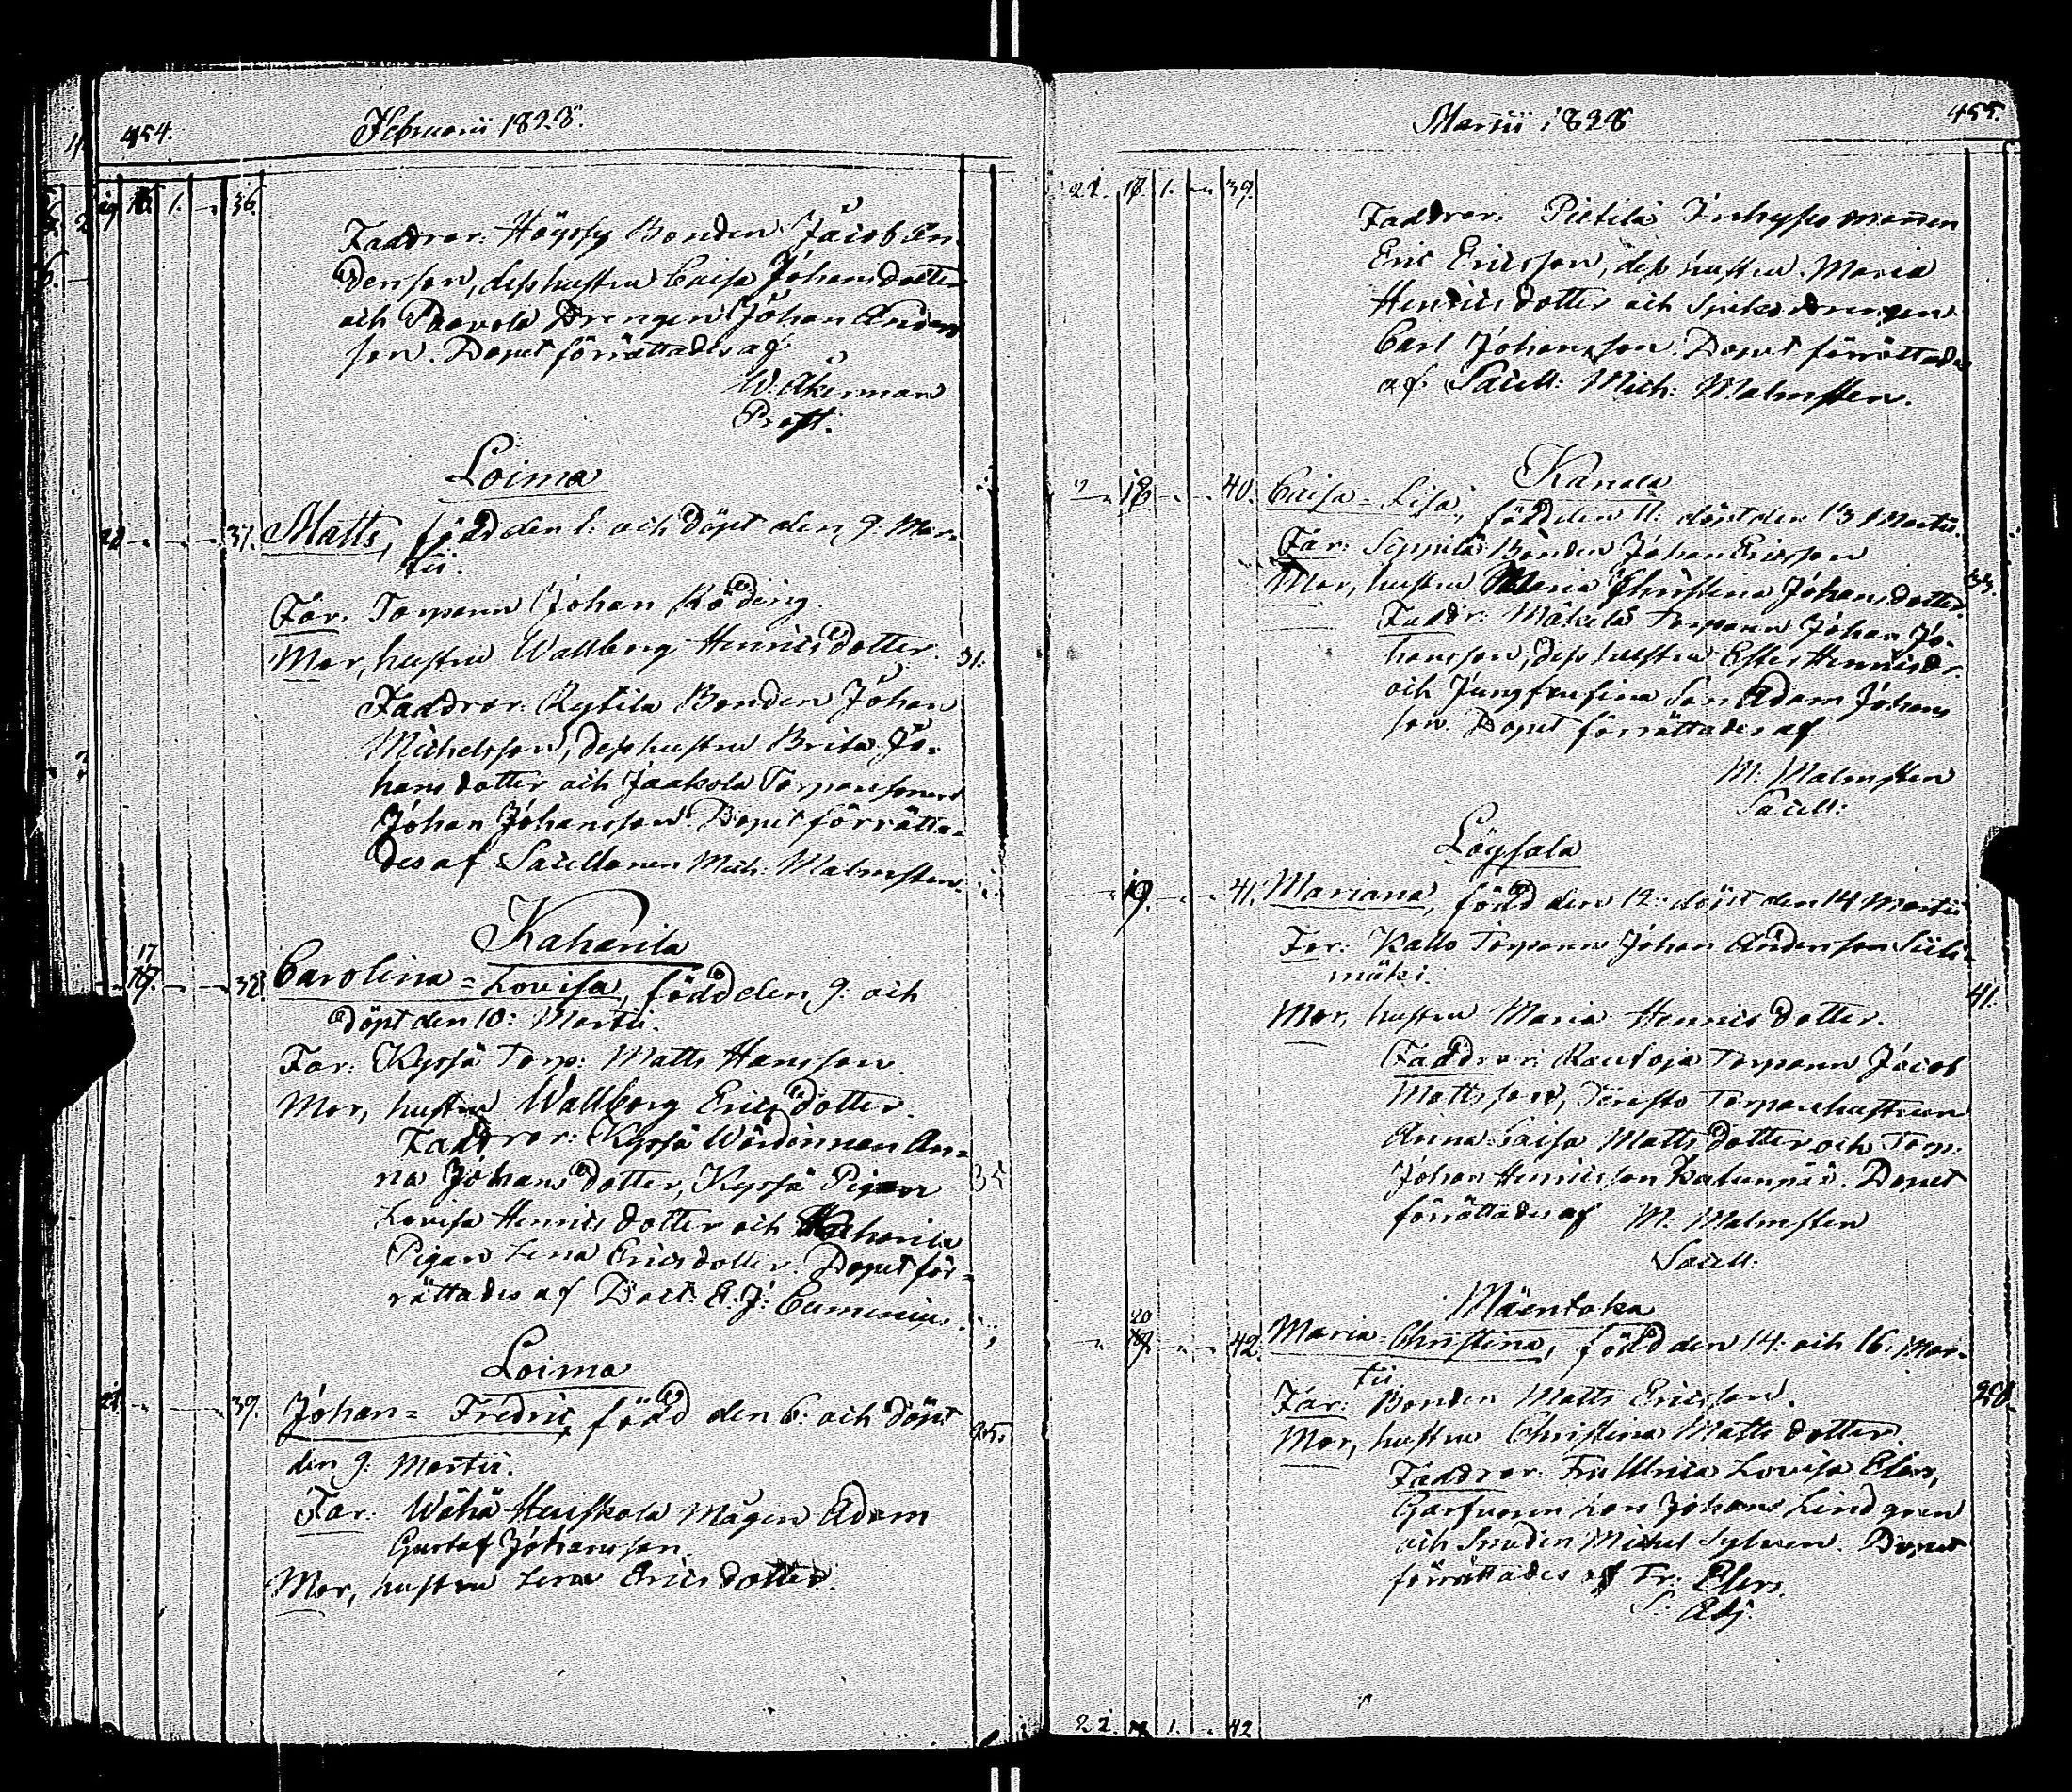 454.
Februarii 1828.
19 16. 1. - 36.
Faddrar: Höyssy Bonden Jacob An-
dersson, dess hustru Caisa Johansdotter
och Paavola Drengen Johan Anders
son. Dopet förrättades af
W. Åkerman
Prost.
Loima
20 - - - 37. Matts, född den 1. och döpt den 9. Mar-
tii.
Far: Torparen Johan Röding.
Mor, hustru Wallborg Henricsdotter. 31.
Faddrar: Kytilä Bonden Johan
Michelsson, dess hustru Brita Jo-
hansdotter och Jaakola Torparesonen
Johan Johansson. Dopet förrätta-
des af Sacellanen Mich: Malmsten.
Kaharila
17
- 18. - - 38 Carolina-Lovisa, född den 9. och
döpt den 10: Martii.
Far: Kyssä Torp: Matts Hansson.
Mor, hustru Wallborg Ericsdotter.
Faddrar: Kyssä Wärdinnan An-
na Johansdotter, Kyssä Pigan 35
Lovisa Henricsdotter och Kaharila
Pigan Lena Ericsdotter. Dopet för-
rättades af Doct: E. J. Cumenius.
Loima
21. - - - 39. Johan-Fredric, född den 6: och döpt 25.
den 9: Martii.
Far: Wähä Heiskola Mågen Adam
Gustaf Johansson.
Mor, hustru Lena Ericsdotter.
Martii 1828
455.
21. 17. 1. - 39.
Faddrar: Pietilä Inhyses mannen
Eric Ericsson, dess hustru Maria
Henricsdotter och drengen
Carl Johansson. Dopet förrättades
af Sacell: Mich: Malmsten.
Kanala
- 18 - - 40. Caisa-Lisa, född den 11: döpt den 13 Martii.
Far: Seppilä Bonden Johan Ericsson
Mor, hustru Maria Christina Johansdotter. 33.
Faddr: Mäkelä Torparen Johan Jo-
hansson, dess hustru Ester Henricsdr.
och Jungfru Son Adam Johans
son. Dopet förrättades af
M: Malmsten
Sacell:
Löysala
- 19. - - 41. Mariana, född den 12: döpt den 14 Martii
Far: Kallo Torparen Johan Andersson
mäki.
41.
Mor, hustru Maria Henricsdotter.
Faddrar: Rautoja Torparen Jacob
Mattsson, Torparehustrun
Anna Caisa Mattsdotter och Torp:
Johan Henricsson. Dopet
förrättades af M: Malmsten
Sacell:
Mäentaka
20
- 19. - - 42. Maria-Christina, född den 14: och 16: Mar-
tii
Far: Bonden Matts Ericsson. 28.
Mor, hustru Christina Mattsdotter.
Faddrar: Fru Ulrica Lovisa Elers,
Garfvaren Johan Lindgren
och Smeden Michel Sylven. Dopet
förrättades af Fr: Elers.
S: Adj
22. 1. - 42